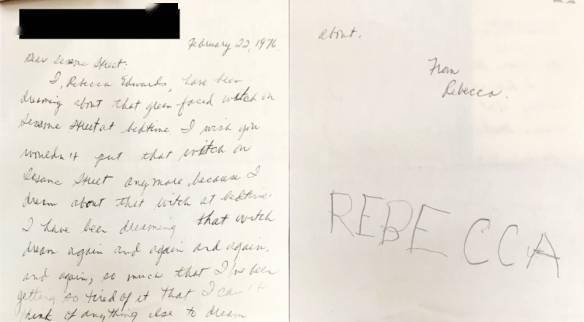 February 22, 1976
Dear Sesame Street.
I, Rebecca Edwards, have been
dreaming about that green-faced witch on
Sesame Street at bedtime. I wish you
wouldn't put that witch on
Sesame Street anymore, because I
dream about that witch at bedtime
I have been dreaming that witch
dream again and again and again,
and again, so much that I've been
getting so tired of it that I can't
think of anything else to dream
about.
From
Rebecca.
REBECCA